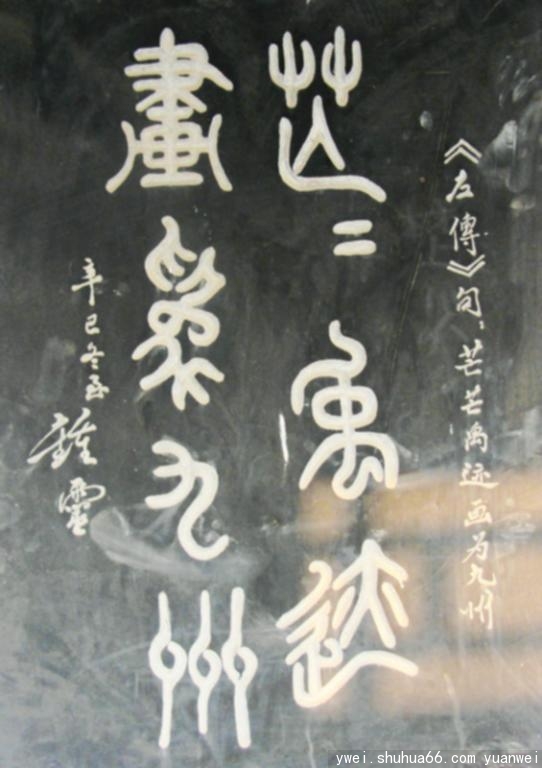 《左傳》句：芒芒禹迹画为九州
芒〻禹迹
畫為九州
辛巳冬月
鍾靈
ywei.shuhua66.com yuanwei